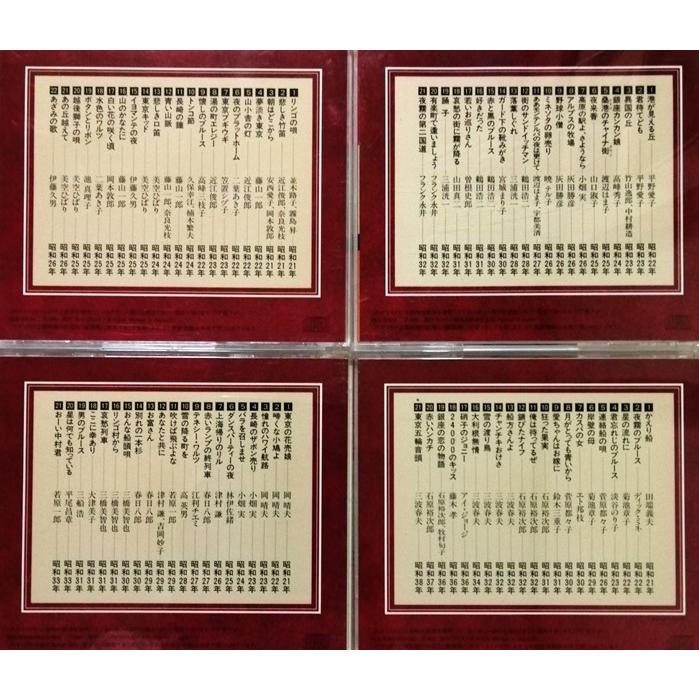 1 リンゴの唄 並木路子、霧島昇 昭和21年
2 悲しき竹笛 近江俊郎、奈良光枝 昭和21年
3 朝はどこから 安西愛子、岡本敦郎 昭和21年
4 夢淡き東京 藤山一郎 昭和22年
5 山小舎の灯 近江俊郎 昭和22年
6 夜のプラットホーム 二葉あき子 昭和22年
7 東京ブギウギ 笠置シヅ子 昭和23年
8 湯の町エレジー 近江俊郎 昭和23年
9 懐しのブルース 高峰三枝子 昭和23年
10 トンコ節 久保幸江、楠木繁夫 昭和24年
11 長崎の鐘 藤山一郎 昭和24年
12 青い山脈 藤山一郎、奈良光枝 昭和24年
13 悲しき口笛 美空ひばり 昭和24年
14 東京キッド 美空ひばり 昭和25年
15 イヨマンテの夜 伊藤久男 昭和25年
16 山のかなたに 藤山一郎 昭和25年
17 白い花の咲く頃 岡本敦郎 昭和25年
18 水色のワルツ 二葉あき子 昭和25年
19 ボタンとリボン 池真理子 昭和25年
20 越後獅子の唄 美空ひばり 昭和25年
21 あの丘越えて 美空ひばり 昭和26年
22 あざみの歌 伊藤久男 昭和26年
1 港が見える丘 平野愛子 昭和22年
2 君待てども 平野愛子 昭和23年
3 異国の丘 竹山逸郎、中村耕造 昭和23年
4 銀座カンカン娘 高峰秀子 昭和24年
5 桑港のチャイナ街 渡辺はま子 昭和25年
6 夜来香 山口淑子 昭和25年
7 高原の駅よ、さようなら 小畑実 昭和26年
8 アルプスの牧場 灰田勝彦 昭和26年
9 野球小僧 灰田勝彦 昭和26年
10 ミネソタの卵売り 暁テル子 昭和26年
11 ああモンテンルパの夜は更けて 渡辺はま子、宇都美清 昭和27年
12 街のサンドイッチマン 鶴田浩二 昭和28年
13 落葉しぐれ 三浦洸一 昭和28年
14 ガード下の靴みがき 宮城まり子 昭和30年
15 赤と黒のブルース 鶴田浩二 昭和30年
16 好きだった 鶴田浩二 昭和31年
17 若いお巡りさん 曽根史郎 昭和31年
18 哀愁の街に霧が降る 山田真二 昭和31年
19 踊子 三浦洸一 昭和32年
20 有楽町で逢いましょう フランク永井 昭和32年
21 夜霧の第二国道 フランク永井 昭和32年
1 東京の花売娘 岡晴夫 昭和21年
2 啼くな小鳩よ 岡晴夫 昭和22年
3 憧れのハワイ航路 岡晴夫 昭和23年
4 長崎のザボン売り 小畑実 昭和24年
5 バラを召しませ 小畑実 昭和24年
6 ダンスパーティーの夜 林伊佐緒 昭和25年
7 上海帰りのリル 津村謙 昭和26年
8 赤いランプの終列車 春日八郎 昭和27年
9 テネシーワルツ 江利チエミ 昭和27年
10 雪の降る町を 高英男 昭和28年
11 吹けば飛ぶよな 若原一郎
12 あなたと共に 津村謙、吉岡妙子
13 お富さん 春日八郎 昭和29年
14 別れの一本杉 春日八郎 昭和30年
15 おんな船頭唄 三橋美智也 昭和30年
16 リンゴ村から 三橋美智也 昭和31年
17 哀愁列車 三橋美智也 昭和31年
18 ここに幸あり 大津美子 昭和31年
19 男のブルース 三船浩 昭和31年
20 星は何でも知っている 平尾昌章 昭和33年
21 おーい中村君 若原一郎 昭和33年
1 かえり船 田端義夫 昭和21年
2 夜霧のブルース ディック・ミネ 昭和22年
3 星の流れに 菊池章子 昭和22年
4 君忘れじのブルース 淡谷のり子 昭和23年
5 連絡船の唄 菅原都々子 昭和26年
6 岸壁の母 菊池章子 昭和29年
7 カスバの女 エト邦枝 昭和30年
8 月がとっても青いから 菅原都々子 昭和30年
9 愛ちゃんはお嫁に 鈴木三重子 昭和31年
10 狂った果実 石原裕次郎 昭和31年
11 俺は待ってるぜ 石原裕次郎 昭和32年
12 錆びたナイフ 石原裕次郎 昭和32年
13 船方さんよ 三波春夫 昭和32年
14 チャンチキおけさ 三波春夫 昭和32年
15 雪の渡り鳥 三波春夫 昭和32年
16 大利根無情 三波春夫 昭和34年
17 硝子のジョニー アイ・ジョージ 昭和36年
18 24000のキッス 藤木孝 昭和36年
19 銀座の恋の物語 石原裕次郎、牧村旬子 昭和36年
20 赤いハンカチ 石原裕次郎 昭和37年
21 東京五輪音頭 三波春夫 昭和38年